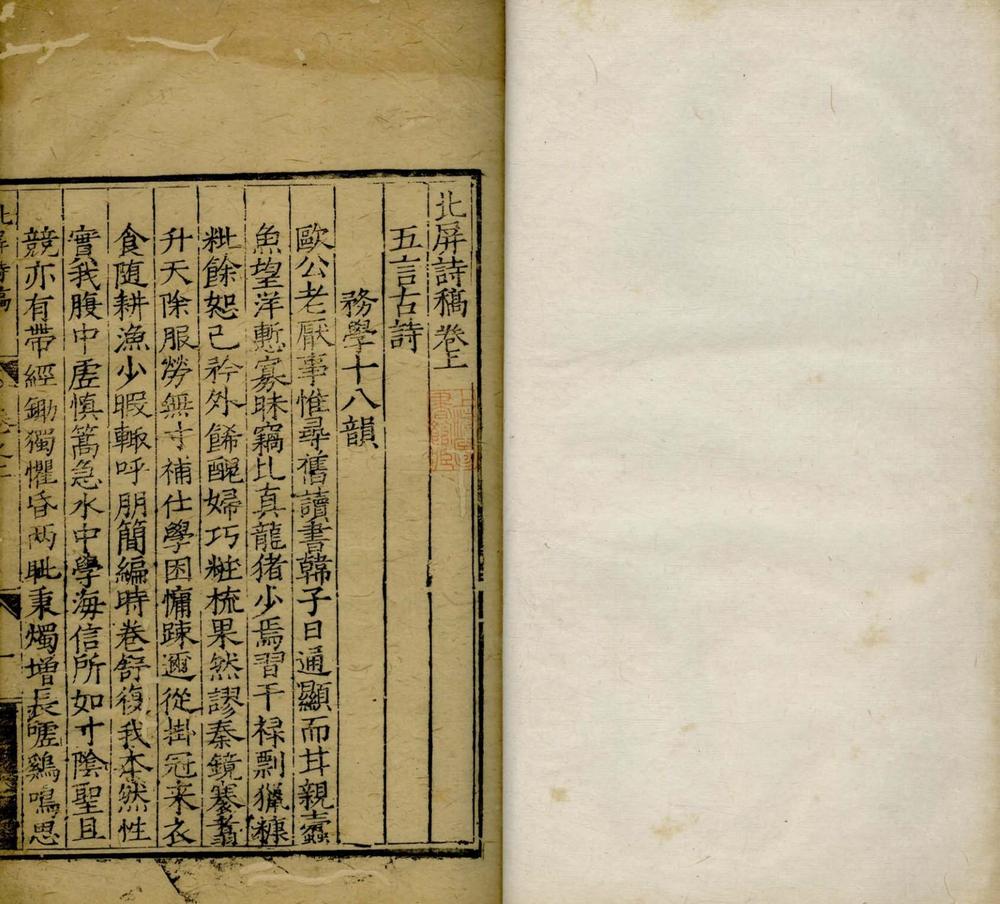 北屏詩稿卷上
五言古詩
務學十八韻
歐公老厭事惟尋舊讀書韓子日通顯而甘親蠹
魚望洋慙寡昧竊比真龍猪少焉習干祿剽獵糠
粃餘恕己矜外餙醜婦巧粧梳果然謬秦鏡褰翥
升天除服勞無寸補仕學困慵踈邇從掛冠来衣
食随耕漁少暇輙呼朋簡編時卷舒復我本然性
實我腹中虗慎篙急水中學海信所如寸陰聖且
競亦有帶經鋤獨懼昏兩眦秉燭增長嘘鷄鳴思
北屏詩稿
卷之上
一